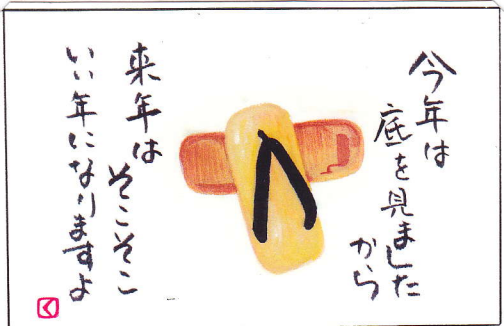 今年は
底を見ました
から
来年は
そこそこ
いい年になりますよ
く